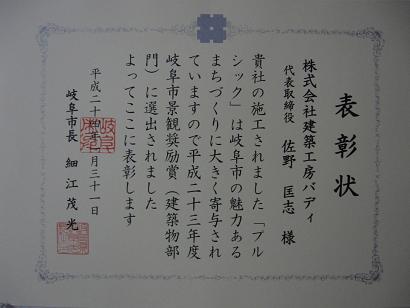 表彰状
株式会社建築工房バディ
代表取締役 佐野 匡志 様
貴社の施工されました「プル
シック」は岐阜市の魅力ある
まちづくりに大きく寄与され
ていますので平成二十三年度
岐阜市景観奨励賞(建築物部
門)に選出されました
よってここに表彰します
平成二十四年 月三十一日
岐阜市長 細江茂光